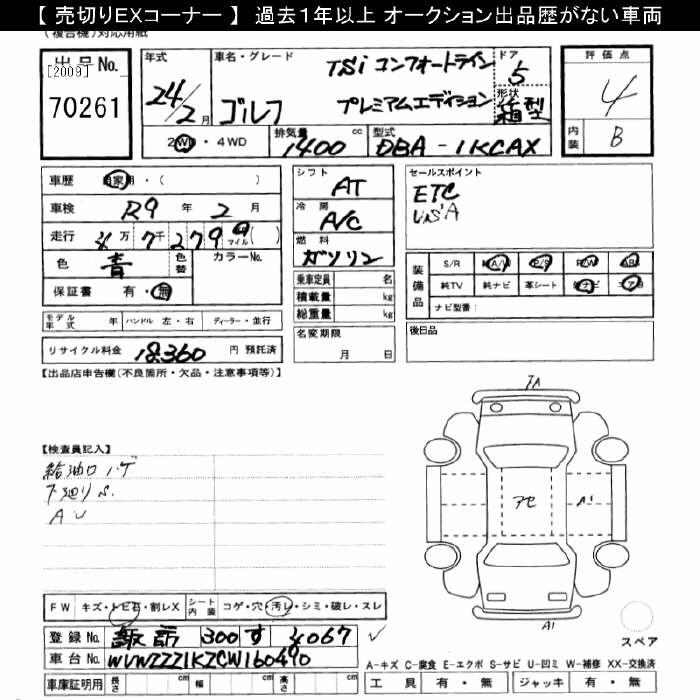 【 売切りEXコーナー 】 過去１年以上 オークション出品歴がない車両
(複合機)対応用紙
出品No.
[2009]
70261
年式
24/2月
車名・グレード
ゴルフ
TSi コンフォートライン
プレミアムエディション
ドア
5
形状
箱型
2WD・4WD
排気量
1400 cc
型式
DBA-1KCAX
評価点
4
内装
B
車歴 自家用・( )
車検 R9年 2月
走行 万 7千 279 マイル( )
色 青 色替 カラーNo.
保証書 有・無
モデル年式 年 ハンドル 左・右 ディーラー・並行
リサイクル料金 18360 円 預託済
シフト
AT
冷房
A/C
燃料
ガソリン
乗車定員 名
積載量 kg
総重量 kg
名変期限
月 日
セールスポイント
ETC
装備品 S/R A/W P/S P/W AB
純TV 純ナビ 革シート ナビ エアB
ナビ型番：
後日品
【出品店申告欄(不良箇所・欠品・注意事項等)】
【検査員記入】
給油口ハゲ
下廻りS.
AU
アセ
A1
A1
FW キズ・トビ石・割レX シート内装 コゲ・穴・汚レ・シミ・破レ・スレ
登録No. 諏訪 300 す 4067
車台No. WVWZZZ1KZCW160490
車庫証明用 長さ cm 幅 cm 高さ cm
スペア
A-キズ C-腐食 E-エクボ S-サビ U-凹ミ W-補修 XX-交換済
工具 有・無 ジャッキ 有・無